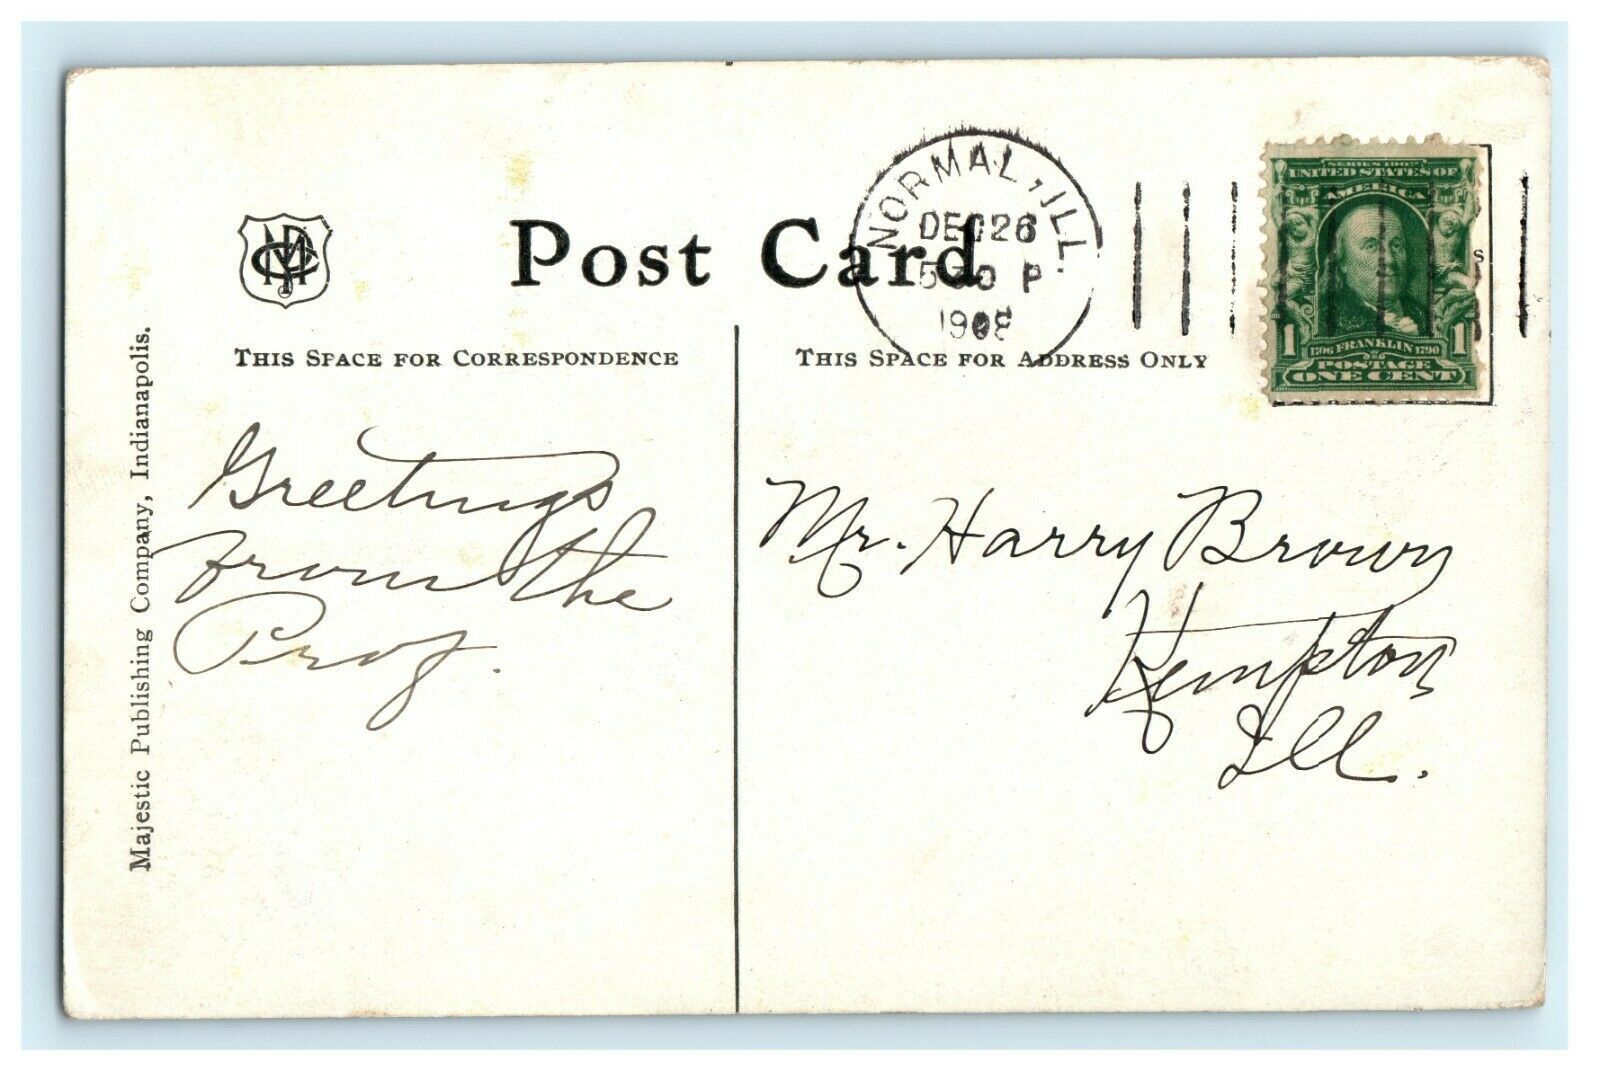 Post Card
NORMAL, ILL.
DEC 26
5 30 P
190
SERIES 1902
UNITED STATES OF
AMERICA
1706 FRANKLIN 1790
1 1
POSTAGE
ONE CENT
S
THIS SPACE FOR CORRESPONDENCE
THIS SPACE FOR ADDRESS ONLY
Majestic Publishing Company, Indianapolis.
Greetings
from the
Prof.
Mr. Harry Brown
Kempton
Ill.